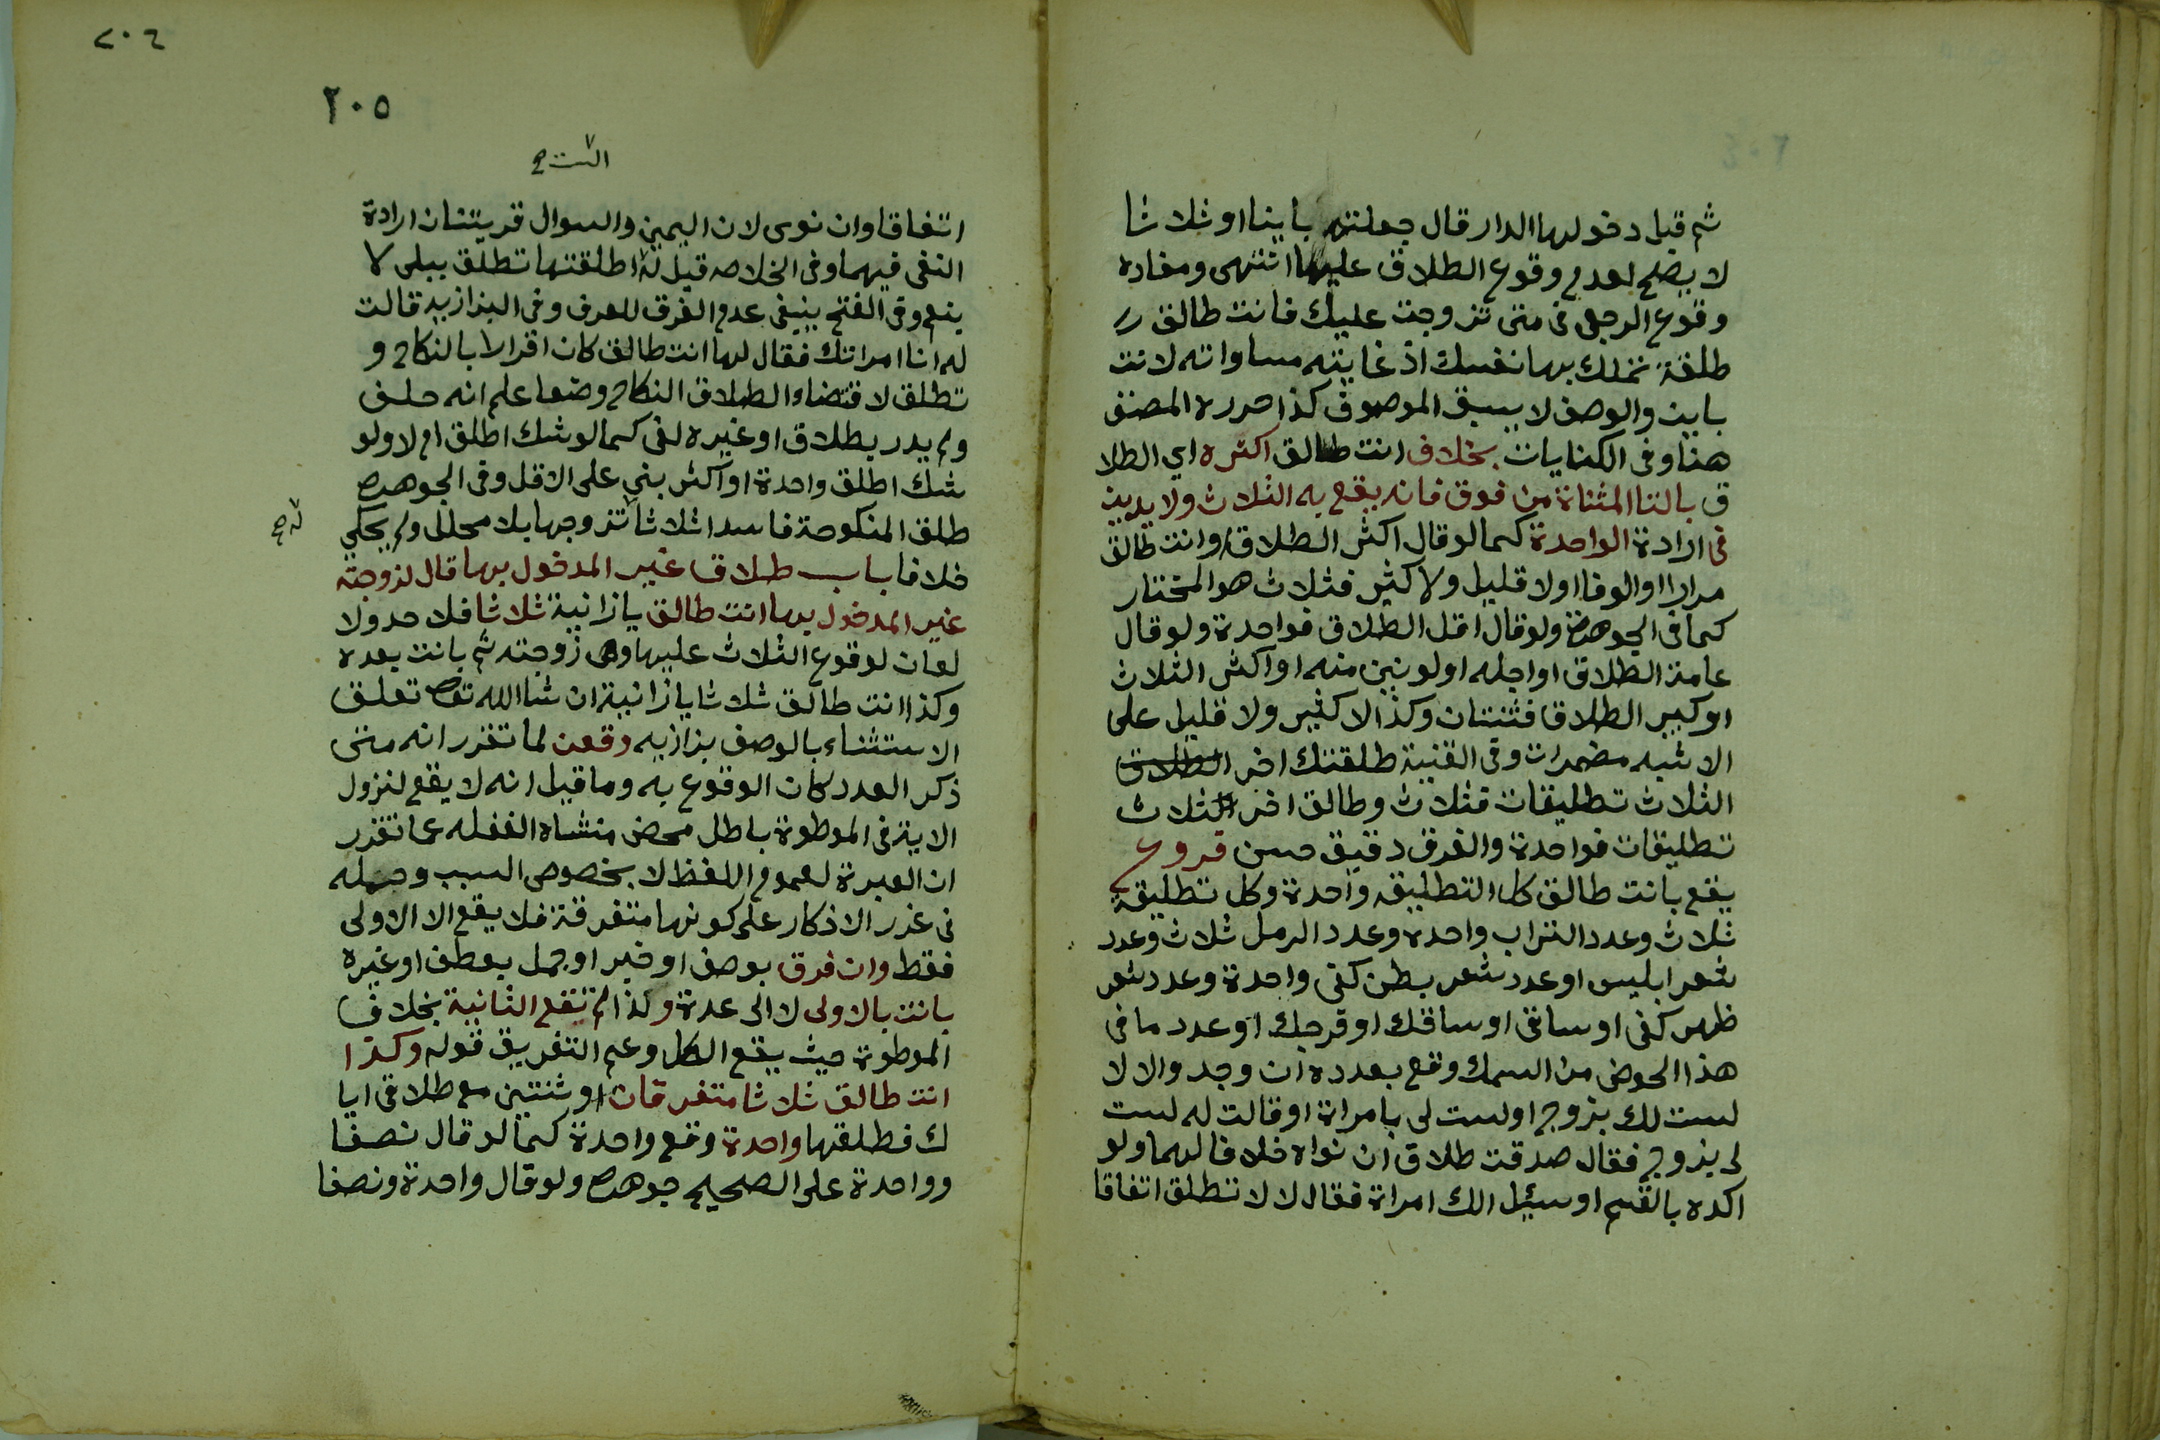 ثم قبل دخولها الدار قال جعلته باينا او ثلاثا
لا يصح لعدم وقوع الطلاق عليها انتهى ومفاده
وقوع الرجعي في متى تزوجت عليك فانت طالق
طلقة تملك بها نفسك اذ غايته مساواته لانت
باين والوصف لا يسبق الموصوف كذا حرره المصنف
هنا وفي الكنايات بخلاف انت طالق اكثره اي الطلا
ق بالتا المثناة من فوق فانه يقع به الثلاث ولا يدين
في ارادة الواحدة كما لو قال اكثر الطلاق او انت طالق
مرارا او الوفا او لا قليل ولا كثير فثلاث هو المختار
كما في الجوهرة ولو قال اقل الطلاق فواحدة ولو قال
عامة الطلاق او اجله او لونين منه او اكثر الثلاث
او كبير الطلاق فثنتان وكذا لا كثير ولا قليل على
الاشبه مضمرات وفي القنية طلقتك اخر الطلاق
الثلاث تطليقات فثلاث وطالق اخر الثلاث
تطليقات فواحدة والفرق دقيق حسن فروع
يقع بانت طالق كل التطليقه واحدة وكل تطليقة
ثلاث وعدد التراب واحدة وعدد الرمل ثلاث وعدد
شعر ابليس او عدد شعر بطن كفي واحدة وعدد شعر
ظهر كفي او ساقي او ساقك او فرجك او عدد ما في
هذا الحوض من السمك وقع بعدده ان وجد والا لا
لست لك بزوج او لست لي بامراة او قالت له لست
لي بزوج فقال صدقت طلاق ان نواه خلافا لهما ولو
اكده بالقسم او سئل الك امراة فقال لا لا تطلق اتفاقا
٢٠٦
٢٠٥
اتفاقا وان نوى لان اليمين والسوال قرينتان ارادة
النفي فيهما وفي الخلاصه قيل له اطلقتها تطلق ببلى لا
بنعم وفي الفتح ينبغي عدم الفرق للعرف وفي البزازيه قالت
له انا امراتك فقال لها انت طالق كان اقرارا بالنكاح و
تطلق لاقتضاء الطلاق النكاح وضعا علم انه حلف
ولم يدر بطلاق او غيره لغي كما لو شك اطلق ام لا ولو
شك اطلق واحدة او اكثر بني على الاقل وفي الجوهره
طلق المنكوحة فاسدا ثلاثا تزوجها بلا محلل ولم يحكي
خلافا باب طلاق غير المدخول بها قال لزوجته
غير المدخول بها انت طالق يا زانية ثلاثا فلا حد ولا
لعان لوقوع الثلاث عليها وهي زوجته ثم بانت بعده
وكذا انت طالق ثلاثا يا زانية ان شا الله تعا تعلق
الاستثناء بالوصف بزازيه وقعن لما تقرر انه متى
ذكر العدد كان الوقوع به وما قيل انه لا يقع لنزول
الاية في الموطوة باطل محض منشاه الغفله عما تقرر
ان العبرة لعموم اللفظ لا بخصوص السبب وحمله
في غرر الاذكار على كونها متفرقة فلا يقع الا الاولى
فقط وان فرق بوصف او خبر او جمل بعطف او غيره
بانت بالاولى لا الى عدة وكذا لم تقع الثانية بخلاف
الموطوة حيث يقع الكل وعم التفريق قوله وكذا
انت طالق ثلاثا متفرقات او ثنتين مع طلاقي ايا
ك فطلقها واحدة وقع واحدة كما لو قال نصفا
وواحدة على الصحيح جوهره ولو قال واحدة ونصفا